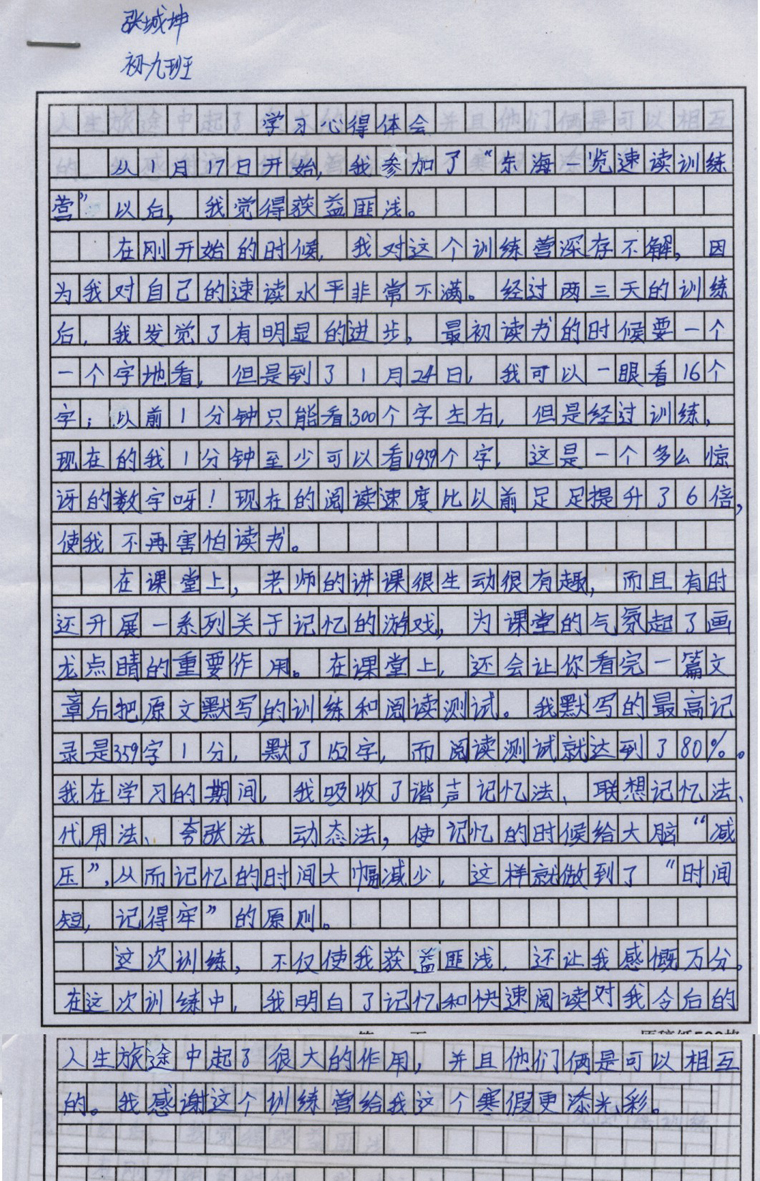 张城坤
初九班
学习心得体会
从1月17日开始,我参加了“东海览速读训练
营”以后,我觉得获益匪浅。
在刚开始的时候,我对这个训练营深存不解,因
为我对自己的速读水平非常不满。经过两三天的训练
后,我发觉了有明显的进步。最初读书的时候要一个
一个字地看,但是到了1月24日,我可以一眼看16个
字;以前1分钟只能看300个字左右,但是经过训练,
现在的我1分钟至少可以看1939个字,这是一个多么惊
讶的数字呀!现在的阅读速度比以前足足提升了6倍,
使我不再害怕读书。
在课堂上,老师的讲课很生动很有趣,而且有时
还开展一系列关于记忆的游戏,为课堂的气氛起了画
龙点睛的重要作用。在课堂上,还会让你看完一篇文
章后把原文默写的训练和阅读测试。我默写的最高记
录是359字1分,默了字,而阅读测试就达到了80%。
我在学习的期间,我吸收了谐声记忆法、联想记忆法、
代用法、夸张法、动态法,使记忆的时候给大脑“减
压”,从而记忆的时间大幅减少,这样就做到了“时间
短,记得牢”的原则。
这次训练,不仅使我获益匪浅,还让我感慨万分。
在这次训练中,我明白了记忆和快速阅读对我令后的
人生旅途中起了很大的作用,并且他们俩是可以相互
的。我感谢这个训练营给我这个寒假更添光彩。